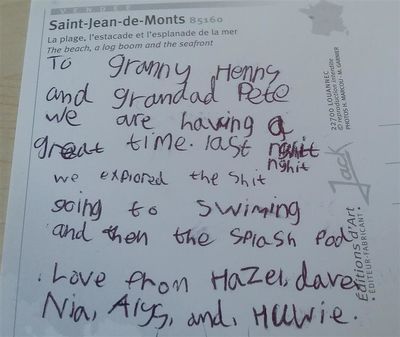 VENDÉE
Saint-Jean-de-Monts 85160
La plage, l'estacade et l'esplanade de la mer
The beach, a log boom and the seafront
To granny Henny
and grandad Pete
we are having a
great time. last nghit
nghit
we explored the shit
going to swiming
and then the splash pod
. Love from Hazel, dave
Nia, Alys, and, Huwie.
22700 LOUANNEC
© reproduction interdite
PHOTOS H. MARCOU - M. GARNIER
Jack
Éditions d'Art
• ÉDITEUR-FABRICANT •